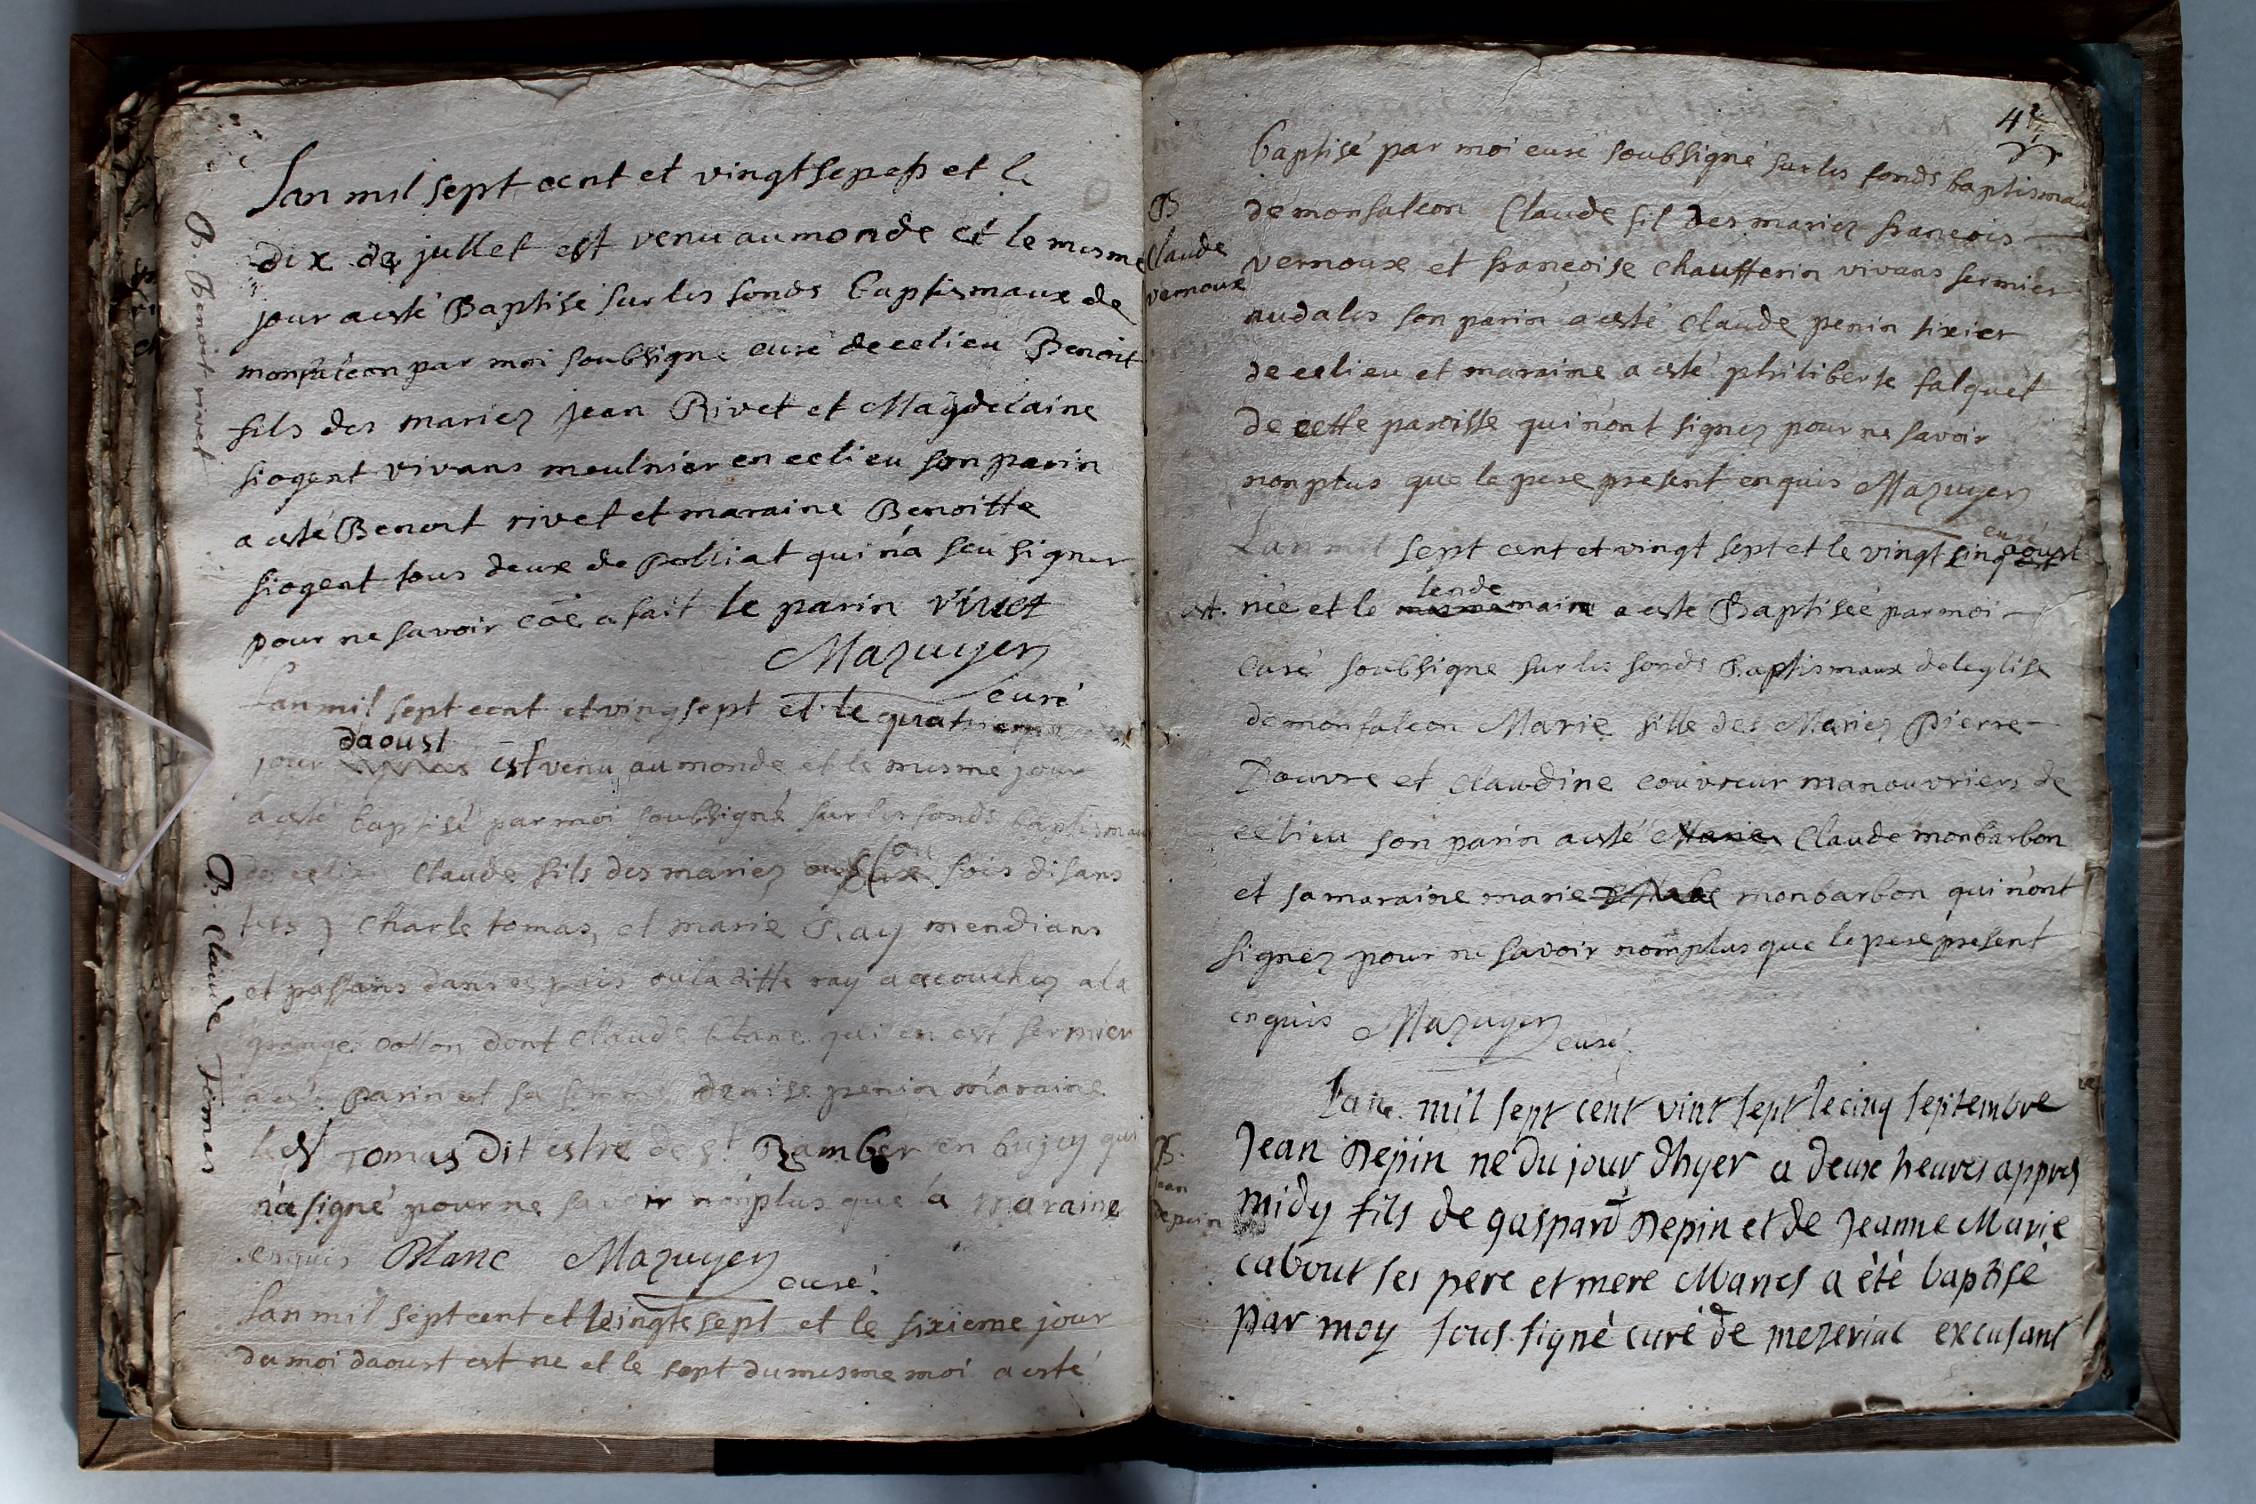 Lan mil sept cent et vingt sept et le
dix de jullet est venu au monde et le mesme
jour a esté Baptisé sur les fonds baptismaux de
monfalcon par moi soubsigné curé de celieu Benoit
fils des mariez jean Rivet et Magdelaine
siogent vivans meulnier en celieu son parin
a esté Benoit rivet et maraine Benoitte
siogent tous deux de polliat qui n'a seu signer
pour ne savoir cõe a fait le parin rivet
Mazuyer
curé
B. Benoit rivet
Lan mil sept cent et vingsept et le quatrieme
daoust
jour est venu au monde et le mesme jour
a esté baptisé par moi soubsigné sur les fonds baptismaux
de celieu Claude fils des mariez ou sois disans
tels Charle tomas et marie ray mendians
et passans dans ce pais ou la ditte ray a acouchez a la
grange cotton dont Claude blanc qui en est fermier
a esté parin et sa femme denise penin maraine
led tomas dit estre de st Ramber en bugey qui
n'a signé pour ne savoir nonplus que la maraine
enquis Blanc Mazuyer
curé
B. Claude Tomas
Lan mil sept cent et vingt sept et le sixieme jour
du moi daoust est ne et le sept du mesme moi a esté
baptisé par moi curé soubsigné sur les fonds baptismau
de monfalcon Claude fil des mariez francois
vernoux et françoise chaufferin vivans fermier
audales son parin a esté claude penin tixier
de celieu et maraine a esté philiberte falquet
de cette paroisse qui n'ont signez pour ne savoir
non plus que le pere present enquis Mazuyer
curé
B
Claude
vernoux
Lan mil sept cent et vingt sept et le vingt sinq aoust
est née et le lendemain a esté Baptiseé par moi
Curé soubsigne sur les fonds Baptismaux de leglise
de monfalcon Marie fille des Mariez Pierre
Pouvre et claudine couvreur manouvriers de
celieu son parin a esté Claude monbarbon
et sa maraine marie monbarbon qui n'ont
signez pour ne savoir nomplus que le pere present
enquis Mazuyer
curé
Lan mil sept cent vint sept le cinq septembre
Jean Depin ne du jour dhyer a deux heures appres
midy fils de gaspard Depin et de Jeanne Marie
cabout ses pere et mere Maries a été baptisé
par moy sous signé curé de mezeriac excusant
B.
jean
depin